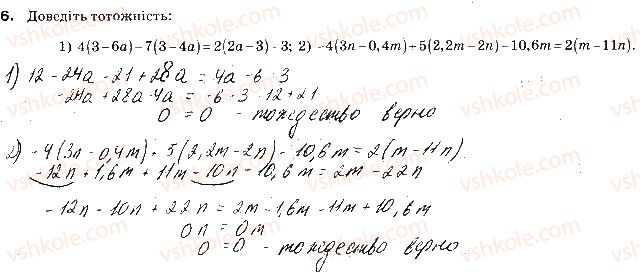 6. Доведіть тотожність:
1) 4(3−6a)−7(3−4a)=2(2a−3) - 3; 2) −4(3n−0,4m)+5(2,2m−2n)−10,6m=2(m−11n).
1) 12 - 24a - 21 + 28a = 4a - 6 - 3
-24a + 28a - 4a = -6 - 3 - 12 + 21
0 = 0 - тождество верно
2) -4(3n - 0,4m) + 5(2,2m - 2n) - 10,6m = 2(m - 11n).
-12n + 1,6m + 11m - 10n - 10,6m = 2m - 22n
-12n - 10n + 22n = 2m - 1,6m - 11m + 10,6m
0n = 0m
0 = 0 - тождество верно.
vshkole.com